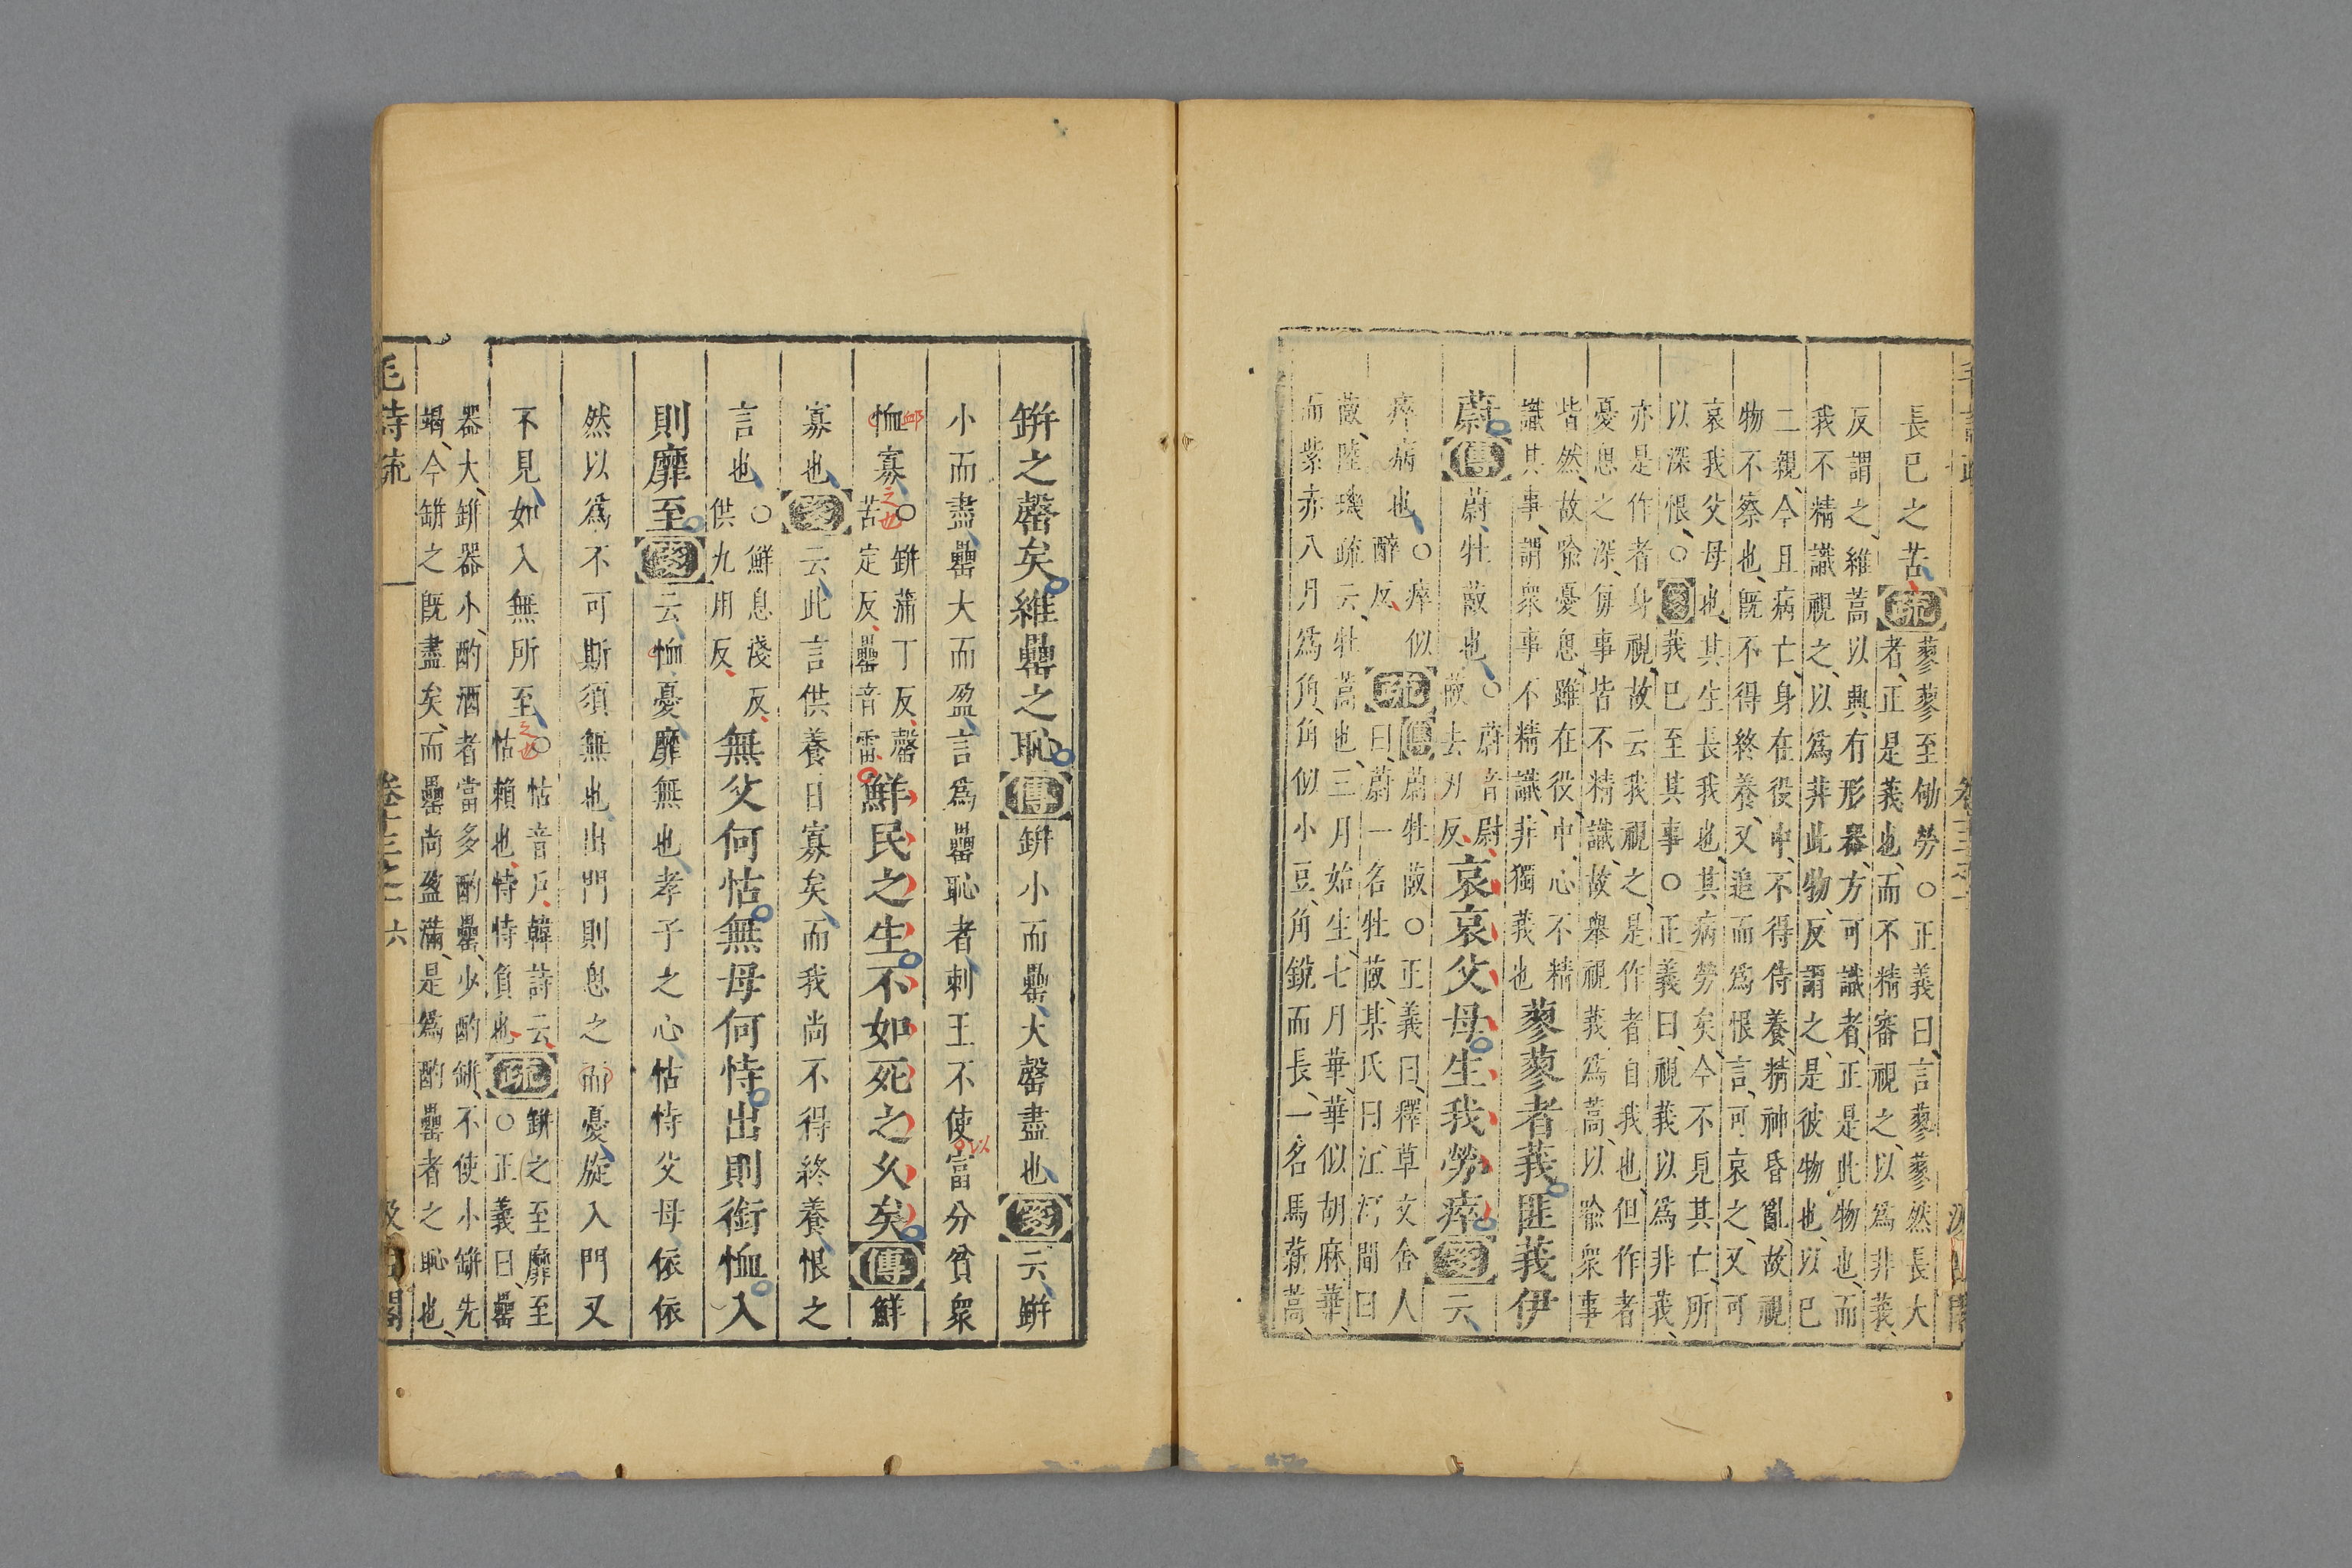 長巳之苦疏蓼蓼至劬勞○正義曰言蓼蓼然長大
者正是莪也而不精審視之以爲非莪
反謂之維蒿以興有形器方可識者正是此物也而
我不精識視之以爲非此物反謂之是彼物也以巳
二親今且病亡身在役中不得侍養精神昏亂故視
物不察也旣不得終養又追而爲恨言可哀之又可
哀我父母也其生長我也其病勞矣今不見其亡所
以深恨○箋莪巳至其事○正義曰視莪以爲非莪
亦是作者身視故云我視之是作者自我也但作者
憂思之深每事皆不精識故舉視莪爲蒿以喻衆事
皆然故喻憂思雖在役中心不精
識其事謂衆事不精識非獨莪也蓼蓼者莪匪莪伊
蔚傳蔚牡菣也○蔚音尉
菣去刃反哀哀父母生我勞瘁箋云
瘁病也○瘁似
醉反疏傳蔚牡菣○正義曰釋草文舍人
曰蔚一名牡菣某氏曰江河間曰
菣陸璣疏云牡蒿也三月始生七月華華似胡麻華
而紫赤八月爲角角似小豆角銳而長一名馬薪蒿
缾之罄矣維罍之恥傳缾小而罍大罄盡也箋云缾
小而盡罍大而盈言爲罍恥者刺王不使富分貧衆
恤寡○缾蒲丁反罄
苦定反罍音雷鮮民之生不如死之久矣傳鮮
寡也箋云此言供養日寡矣而我尚不得終養恨之
言也○鮮息淺反
供九用反無父何怙無母何恃出則銜恤入
則靡至箋云恤憂靡無也孝子之心怙恃父母依依
然以爲不可斯須無也出門則思之而憂旋入門又
不見如入無所至○怙音戶韓詩云
怙賴也恃恃負也疏缾之至靡至
○正義曰罍
器大缾器小酌酒者當多酌罍少酌缾不使小缾先
竭今缾之旣盡矣而罍尚盈滿是爲酌罍者之恥也
毛詩疏 卷十三之一 六 汲古閣